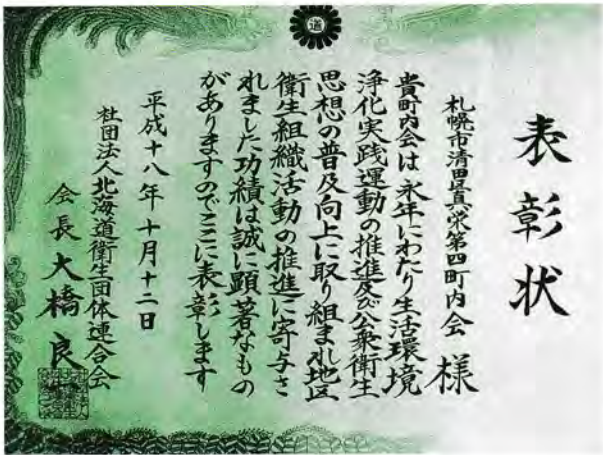 道
表彰状
札幌市清田区真栄第四町内会 様
貴町内会は永年にわたり生活環境
浄化実践運動の推進及び公衆衛生
思想の普及向上に取り組まれ地区
衛生組織活動の推進に寄与さ
れました功績は誠に顕著なもの
がありますのでここに表彰します
平成十八年十月十二日
社団法人北海道衛生団体連合会
会長大橋良